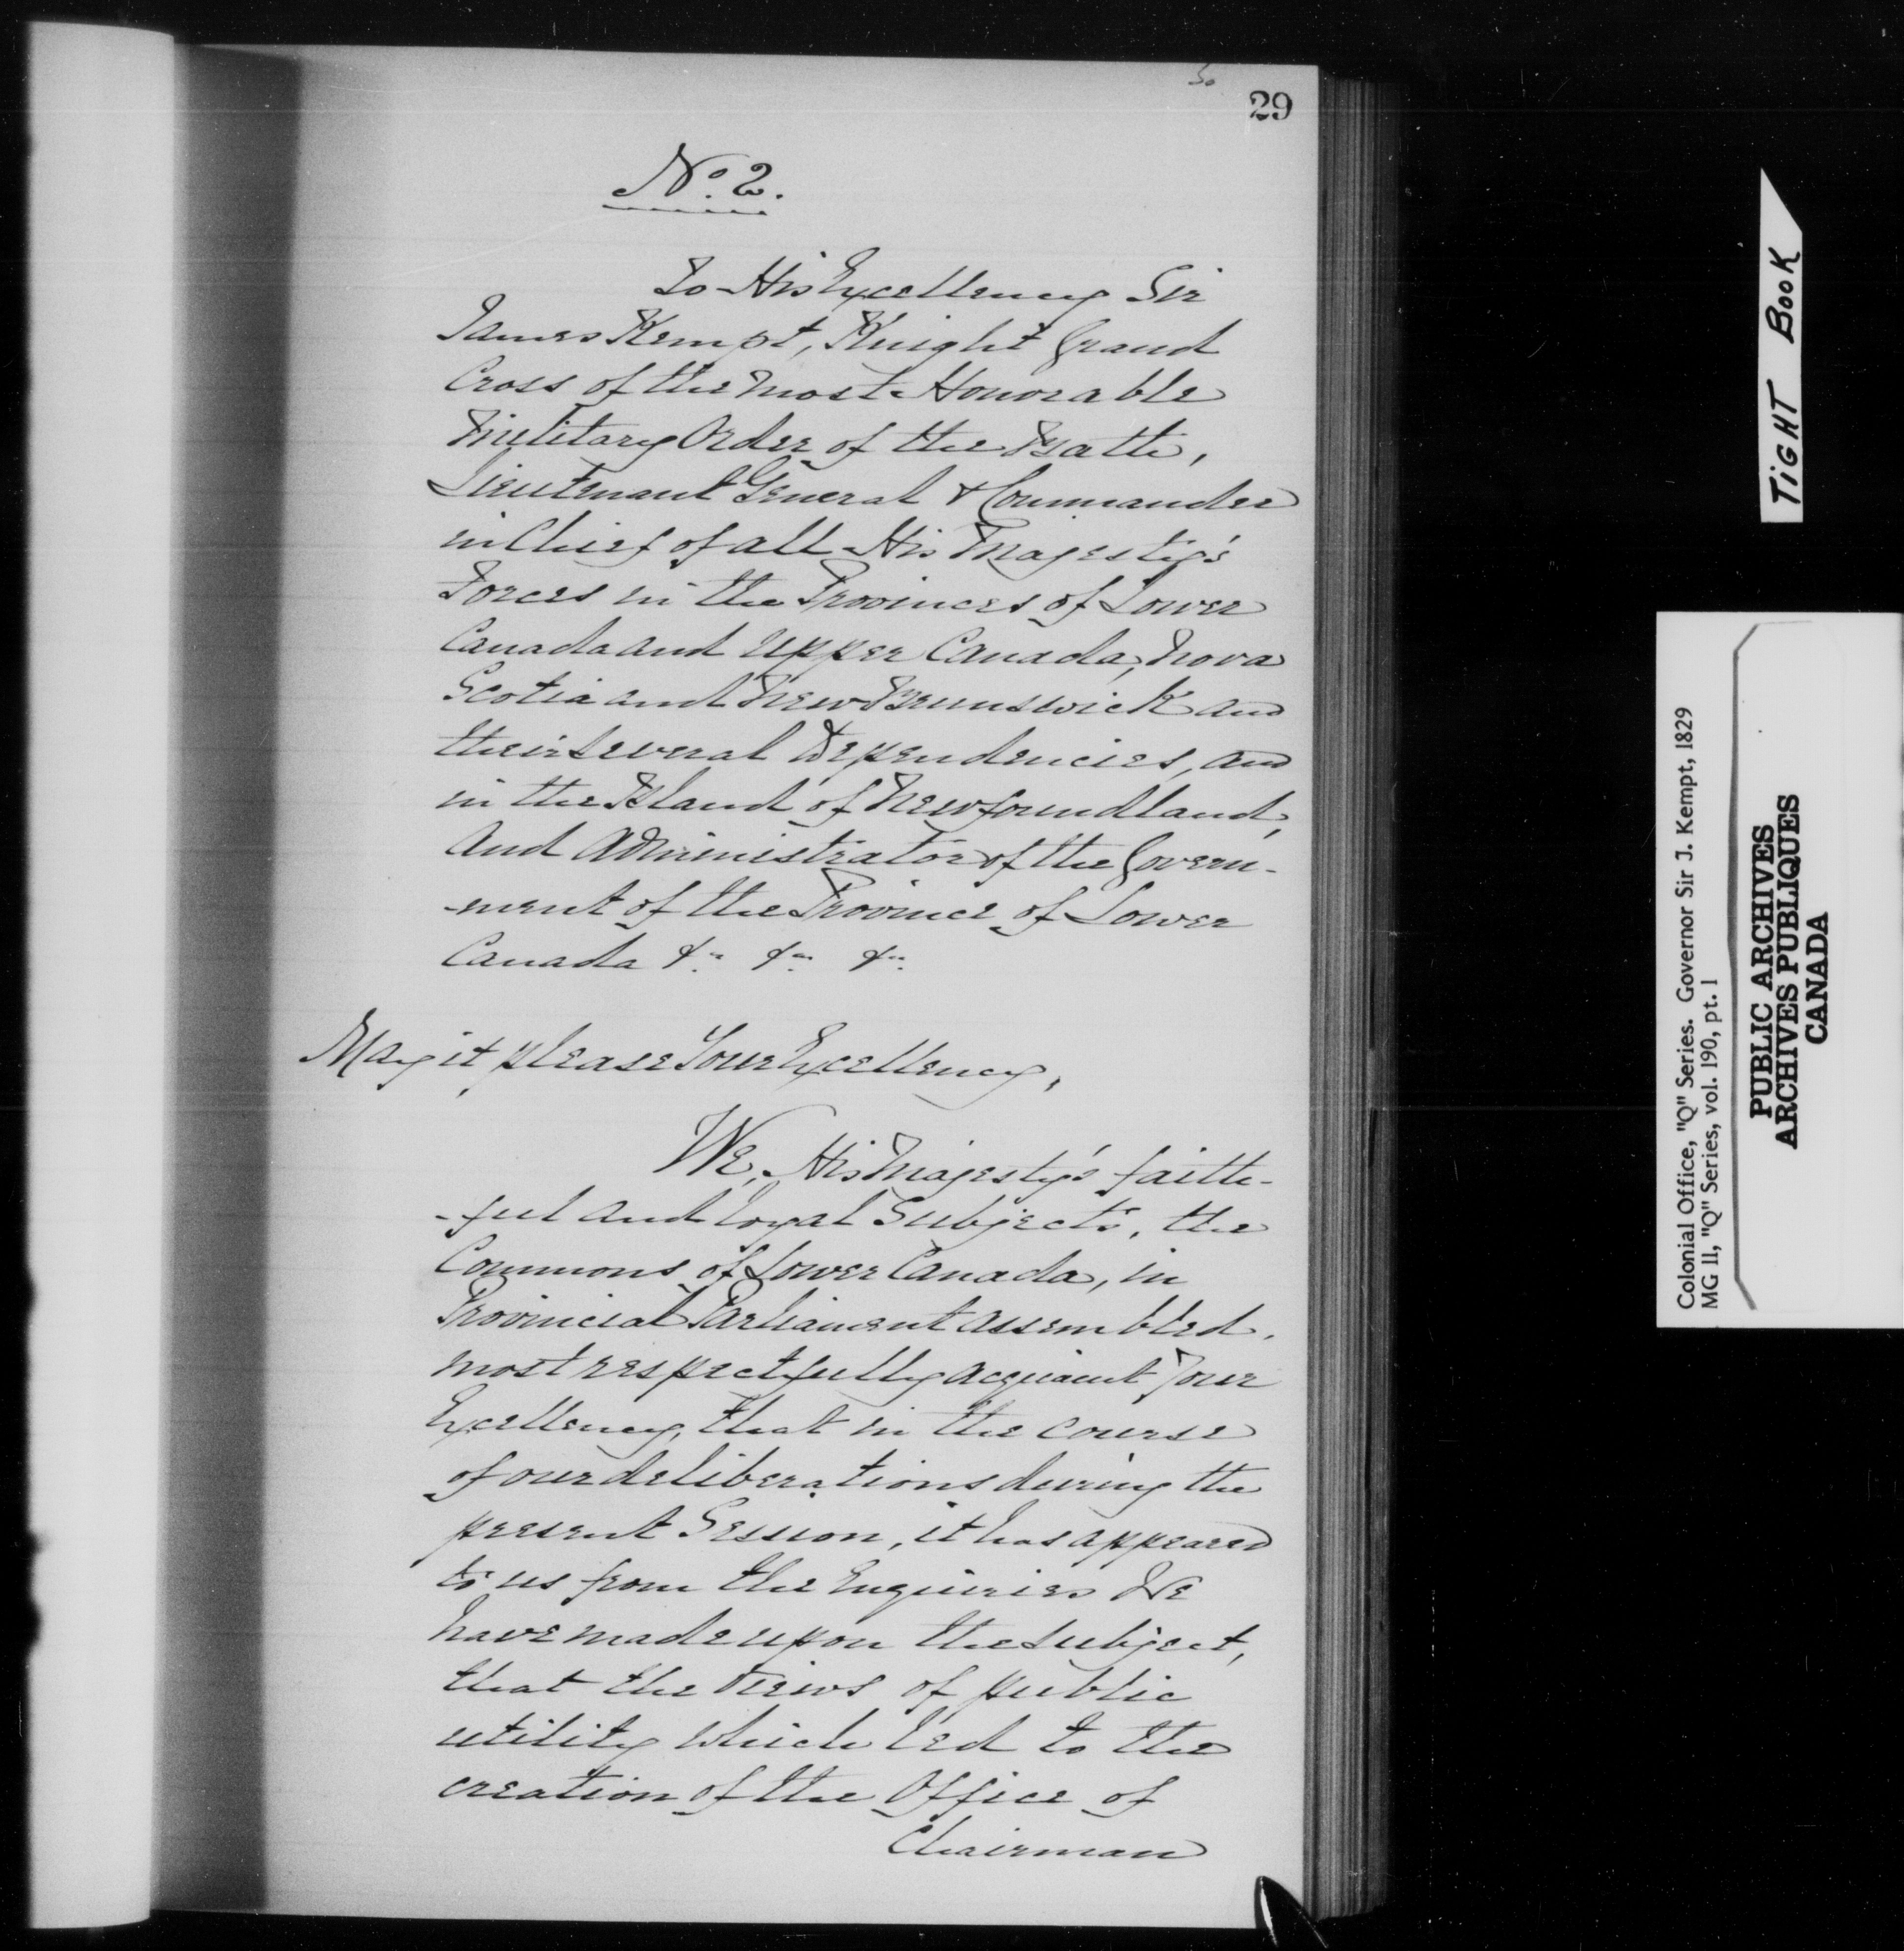 29
No. 2.
To His Excellency Sir
James Kempt, Knight Grand
Cross of the Most Honorable
Military Order of the Bath,
Lieutenant General & Commander
in Chief of all His Majesty's
Forces in the Provinces of Lower
Canada and Upper Canada, Nova
Scotia and New Brunswick and
their several Dependencies, and
in the Island of Newfoundland,
and Administrator of the Govern-
-ment of the Province of Lower
Canada &c &c &c
May it please Your Excellency,
We, His Majesty's faith-
-ful and loyal Subjects, the
Commons of Lower Canada, in
Provincial Parliament assembled,
most respectfully acquaint Your
Excellency, that in the course
of our deliberations during the
present Session, it has appeared
to us from the Enquiries We
have made upon the subject,
that the views of public
utility which led to the
creation of the Office of
Chairman
TIGHT BOOK
Colonial Office, "Q" Series. Governor Sir J. Kempt, 1829
MG 11, "Q" Series, vol. 190, pt. 1
PUBLIC ARCHIVES
ARCHIVES PUBLIQUES
CANADA